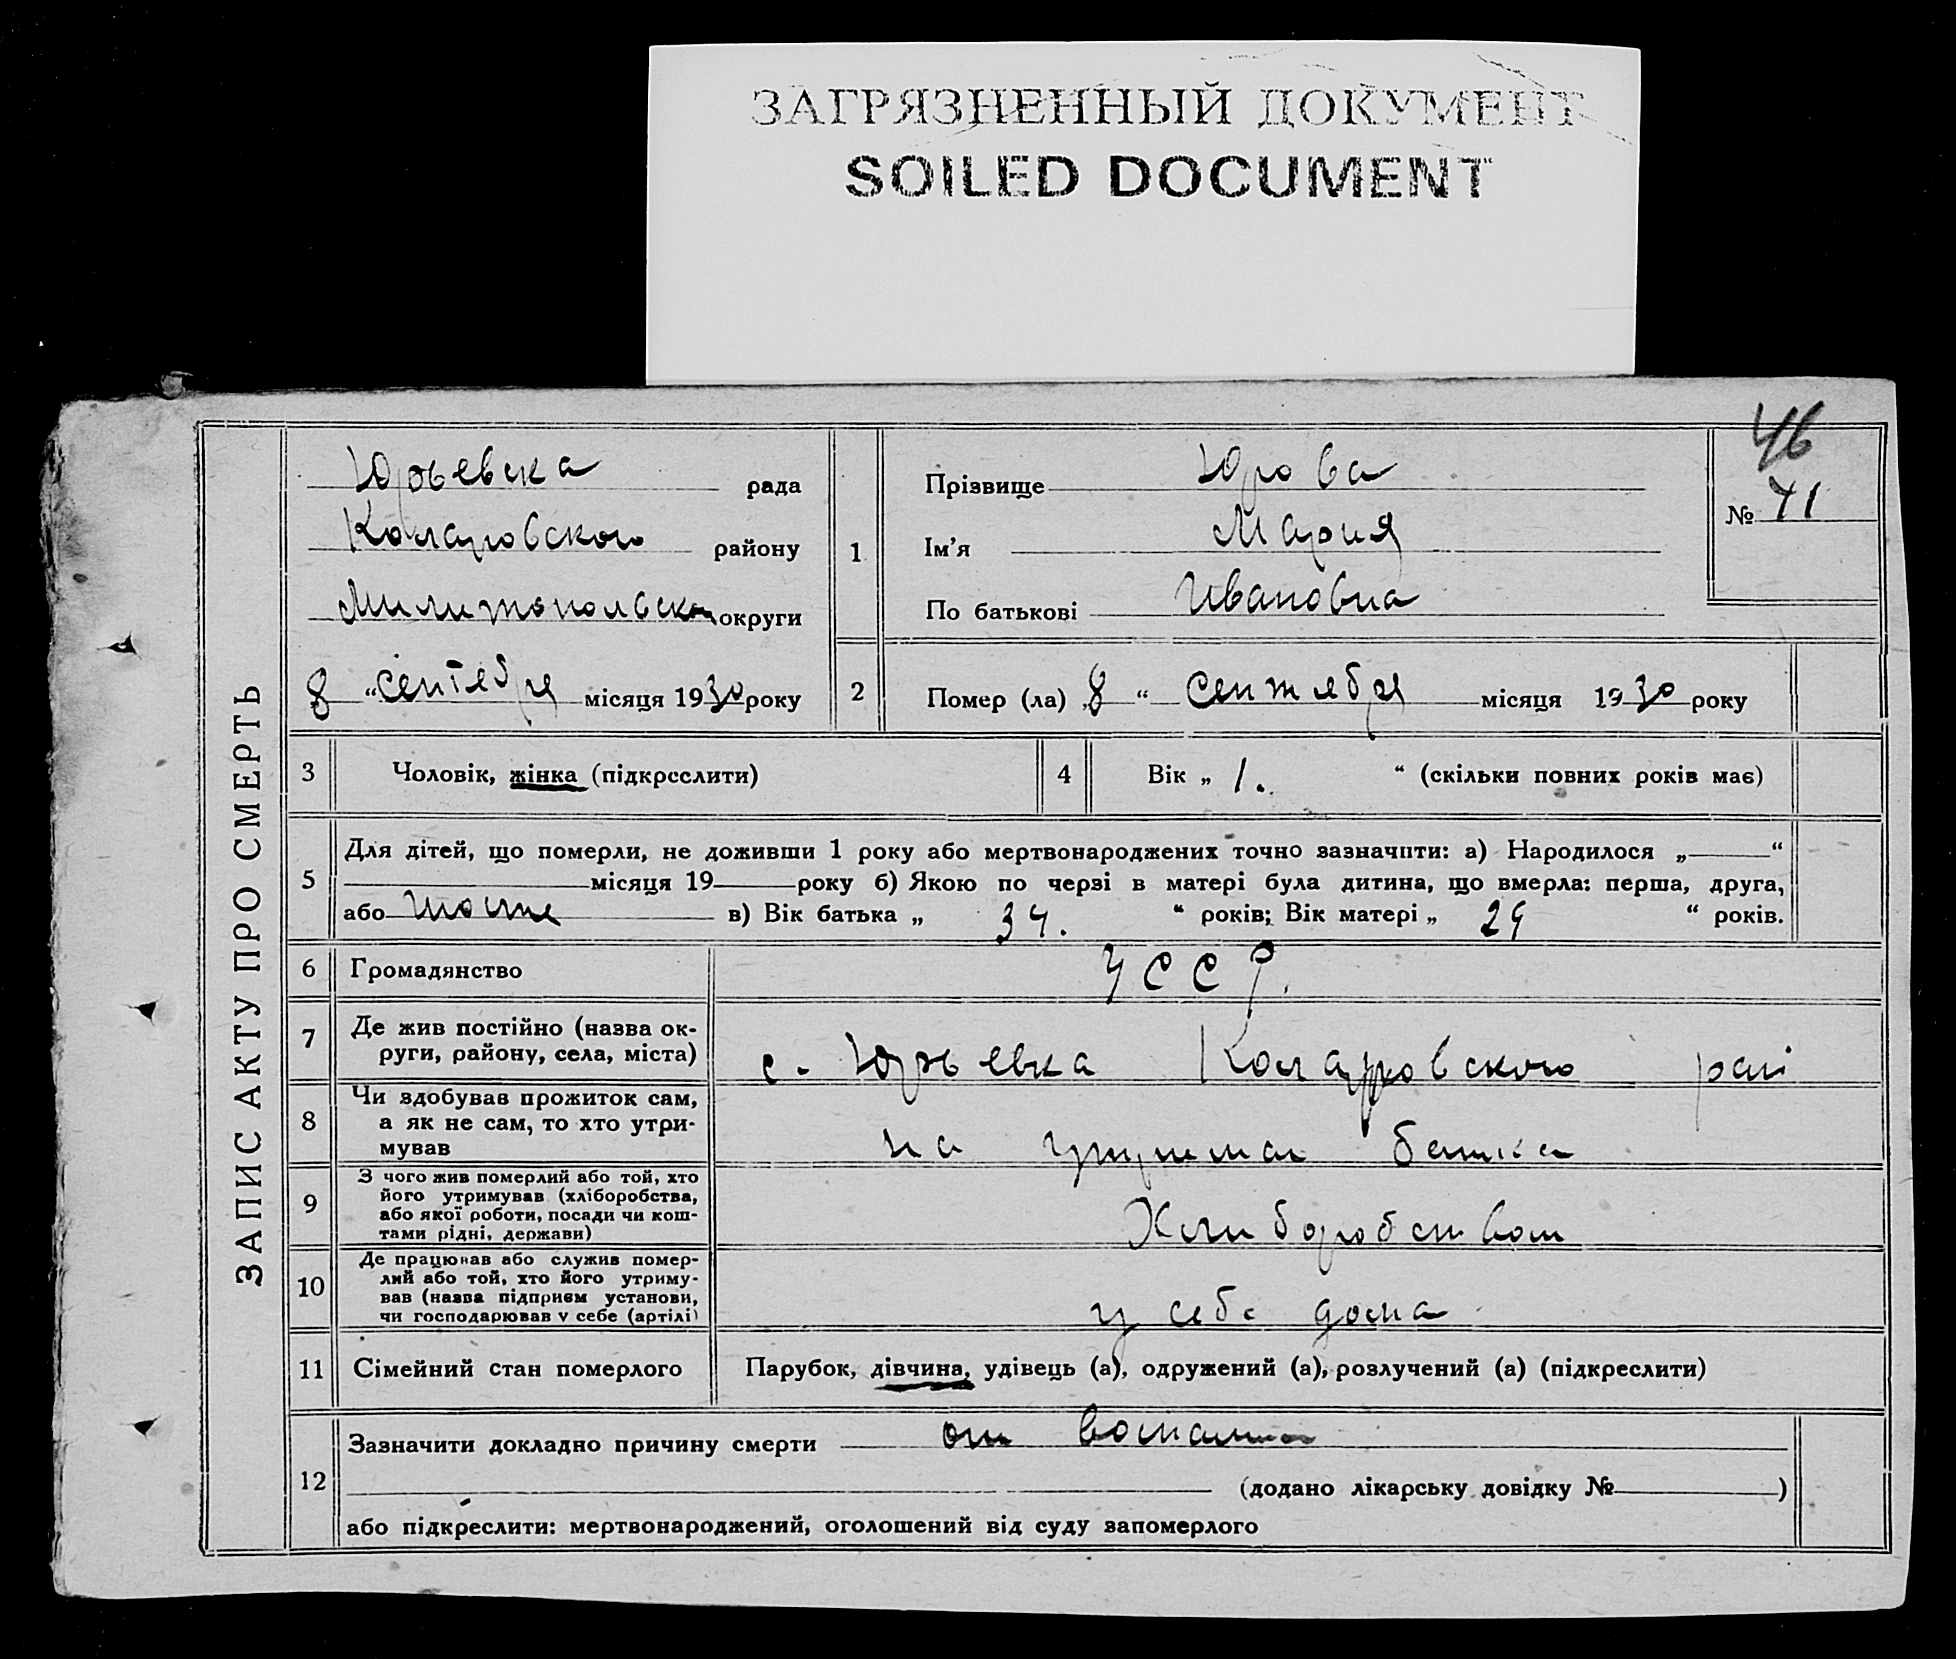 ЗАГРЯЗНЕННЫЙ ДОКУМЕНТ
SOILED DOCUMENT
ЗАПИС АКТУ ПРО СМЕРТЬ
Юрьевска рада
Коларовского району
Милитопольской округи
8 “ сентебря місяця 1930 року
1
Прізвище Юрова
Ім’я Мария
По батькові Ивановна
46
№ 71
2
Помер (ла) „8 “ Сентября місяця 1930 року
3 Чоловік, жінка (підкреслити)
4 Вік „ 1. “ (скільки повних років має)
5 Для дітей, що померли, не доживши 1 року або мертвонароджених точно зазначити: а) Народилося „ “
місяця 19 року б) Якою по черзі в матері була дитина, що вмерла: перша, друга,
або шосте в) Вік батька „ 34. “ років; Вік матері „ 29 “ років.
6 Громадянство УССР.
7 Де жив постійно (назва ок-
руги, району, села, міста)
с. Юрьевка Коларровского рай
8 Чи здобував прожиток сам,
а як не сам, то хто утри-
мував
на утрима батька
9 З чого жив померлий або той, хто
його утримував (хліборобства,
або якої роботи, посади чи кош-
тами рідні, держави)
Хлиборобством
10 Де працював або служив помер-
лий або той, хто його утриму-
вав (назва підприєм установи,
чи господарював у себе (артілі)
у себе дома
11 Сімейний стан померлого Парубок, дівчина, удівець (а), одружений (а), розлучений (а) (підкреслити)
12 Зазначити докладно причину смерти от
(додано лікарську довідку № )
або підкреслити: мертвонароджений, оголошений від суду запомерлого